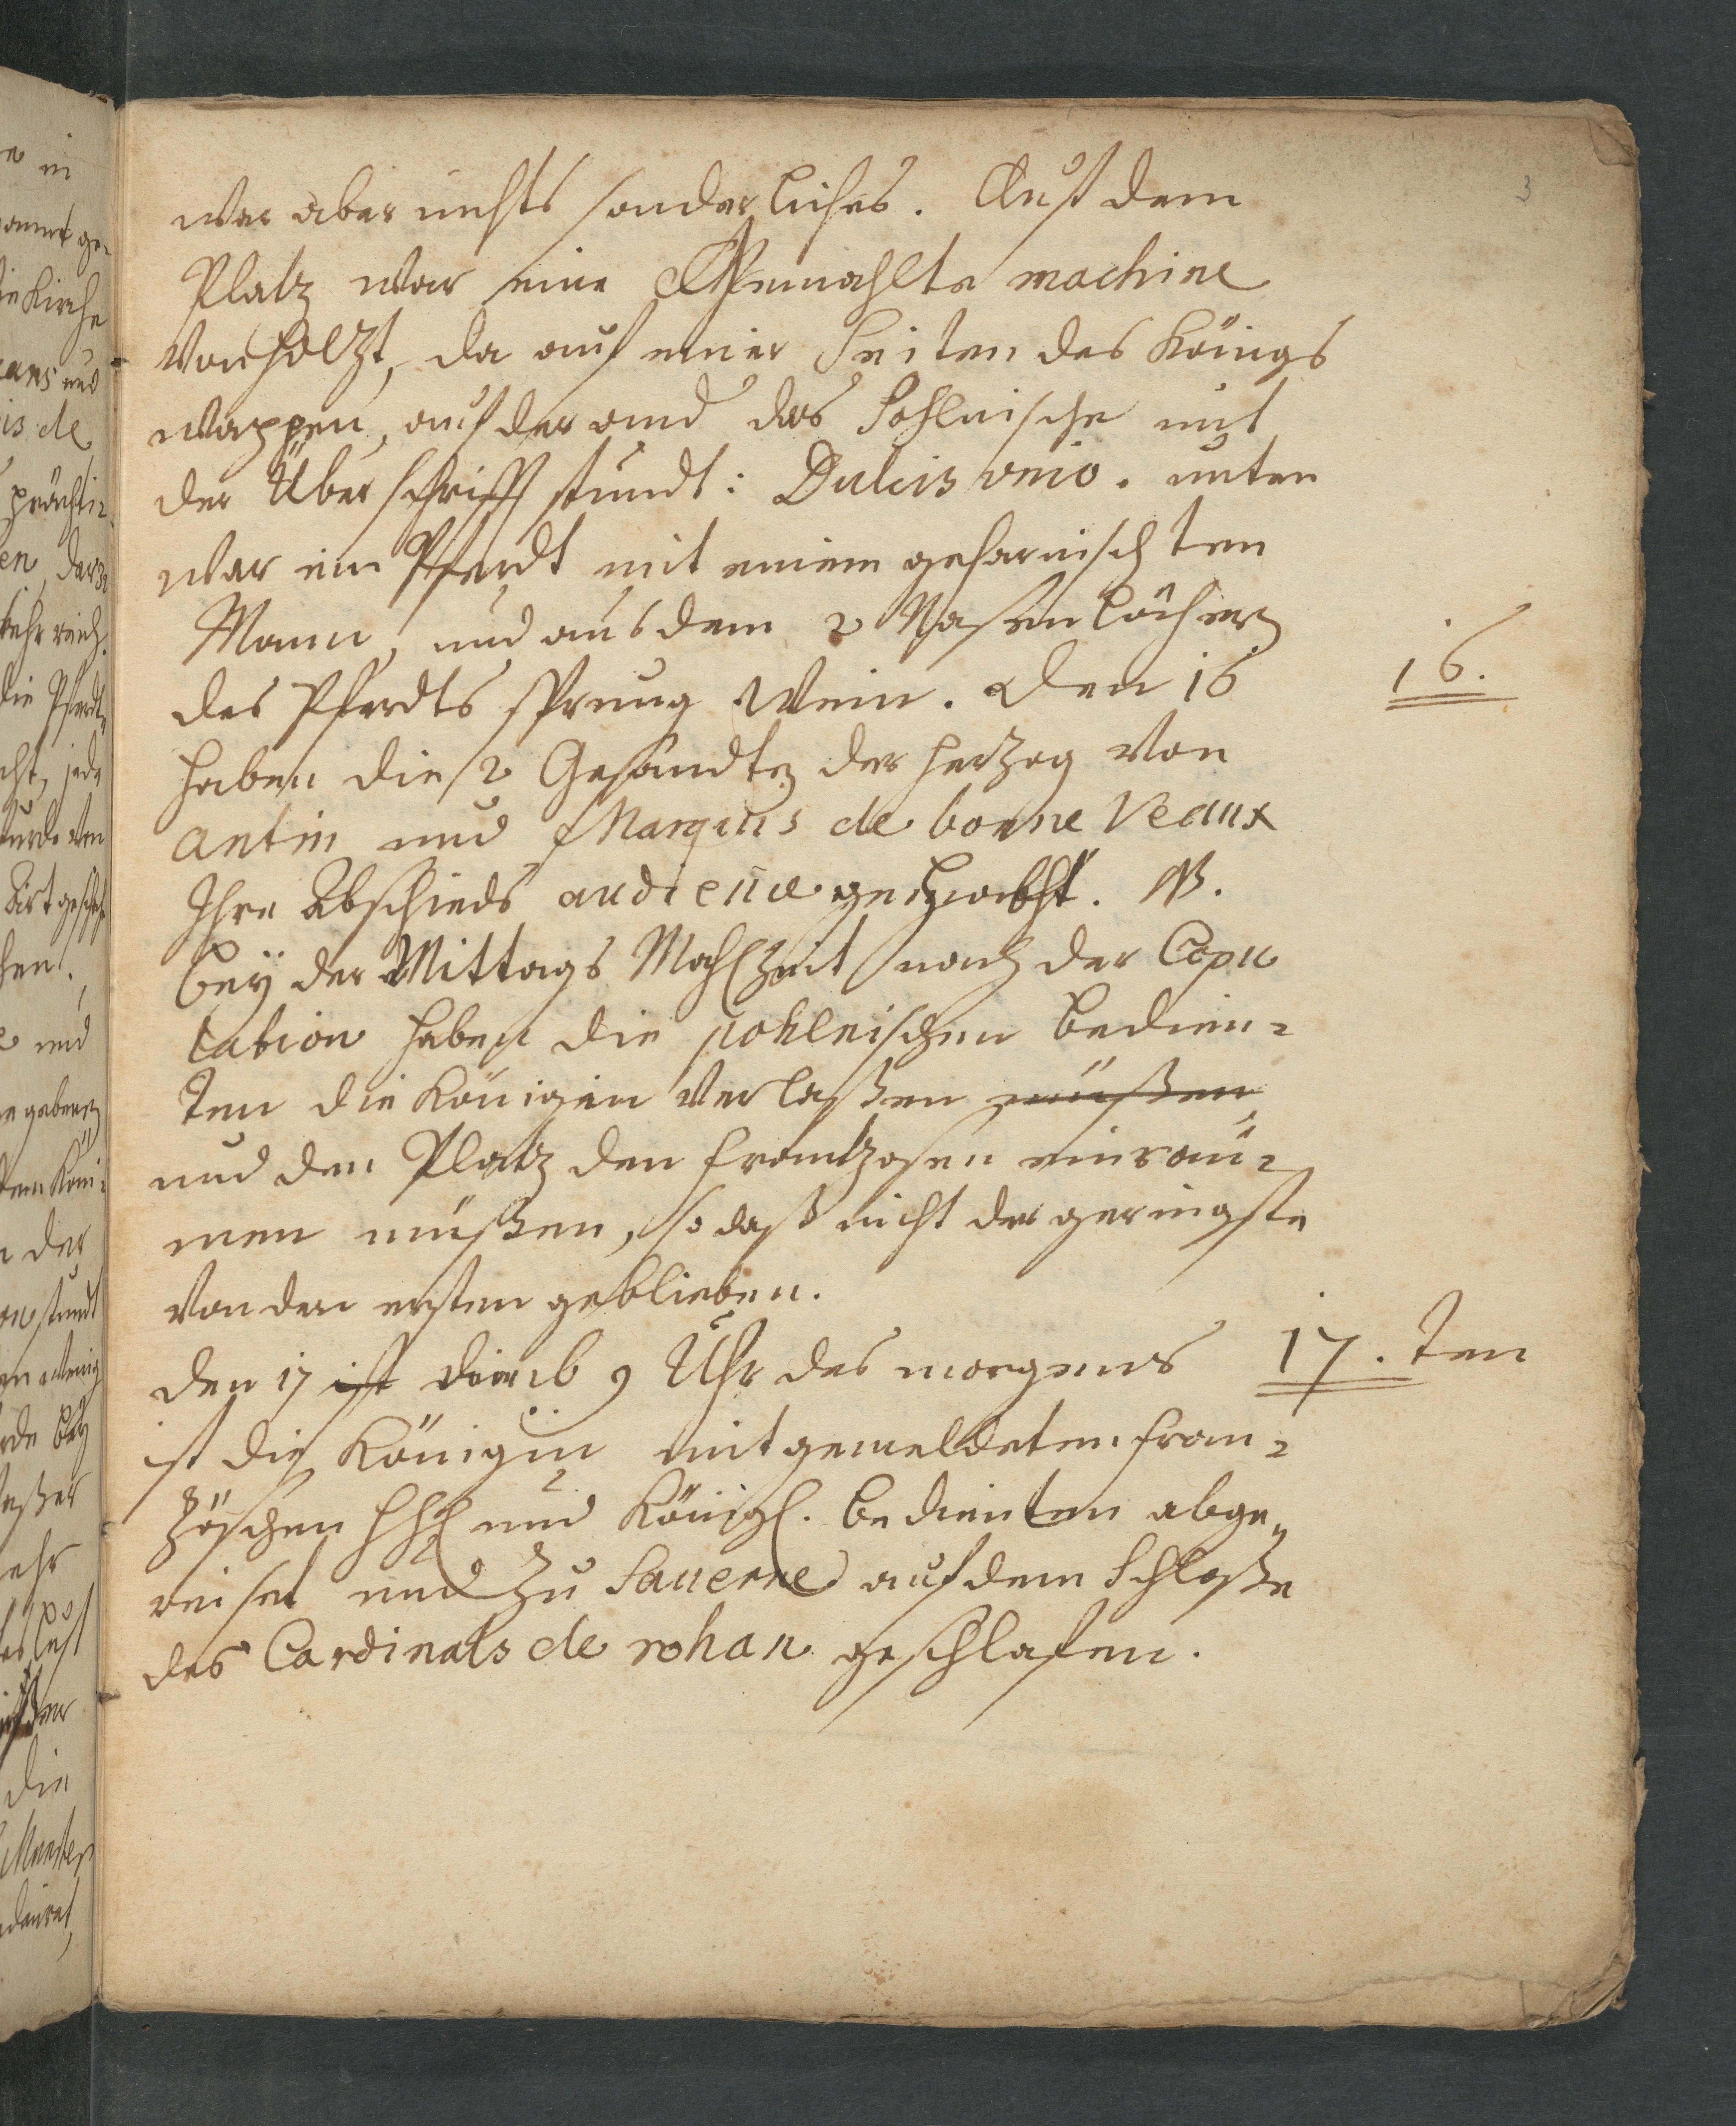 3
war aber nichts sonderliches. Auf dem
Platz war eine Gemahlte machine
Von Holzt, da auf einer Seiten des Königs
wappen, auf der and das Pohlnische mit
der Überschrifft stundt: Dulcis vnio. unten
war ein Pferdt mit einem geharnischten
Mann, und aus dem 2 Nasenlöchern
des Pferdts sprung Wein. den 16
16.
haben die 2 Gesandten der Herzog von
Antin und Marquis de bonne Veaux
Ihre Abschieds audience gehabht. NB.
bey der Mittags Mahlzeit nach der Copu
lation haben die pohlnischen bedien=
ten die Königin Verlaßen müßen
und den Platz den Frantzosen einräu=
men müßen, so daß nicht der geringste
von den ersten geblieben.
den 17 ist umb 9 Uhr des morgens
17. ten
ist die Königin mit gemeldeten Fran=
zöschen HHH und Königl. bedienten abge=
reiset und zu Saverne auf dem Schloße
des Cardinals de rohan geschlafen.